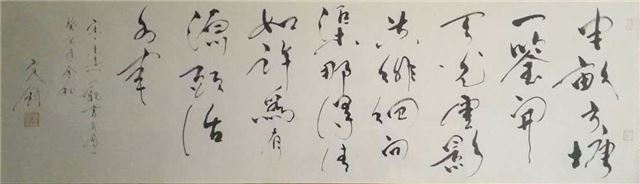 半畝方塘
一鑒開
天光雲影
共徘徊问
渠那得清
如許為有
源頭活
水来
宋朱熹觀書有感